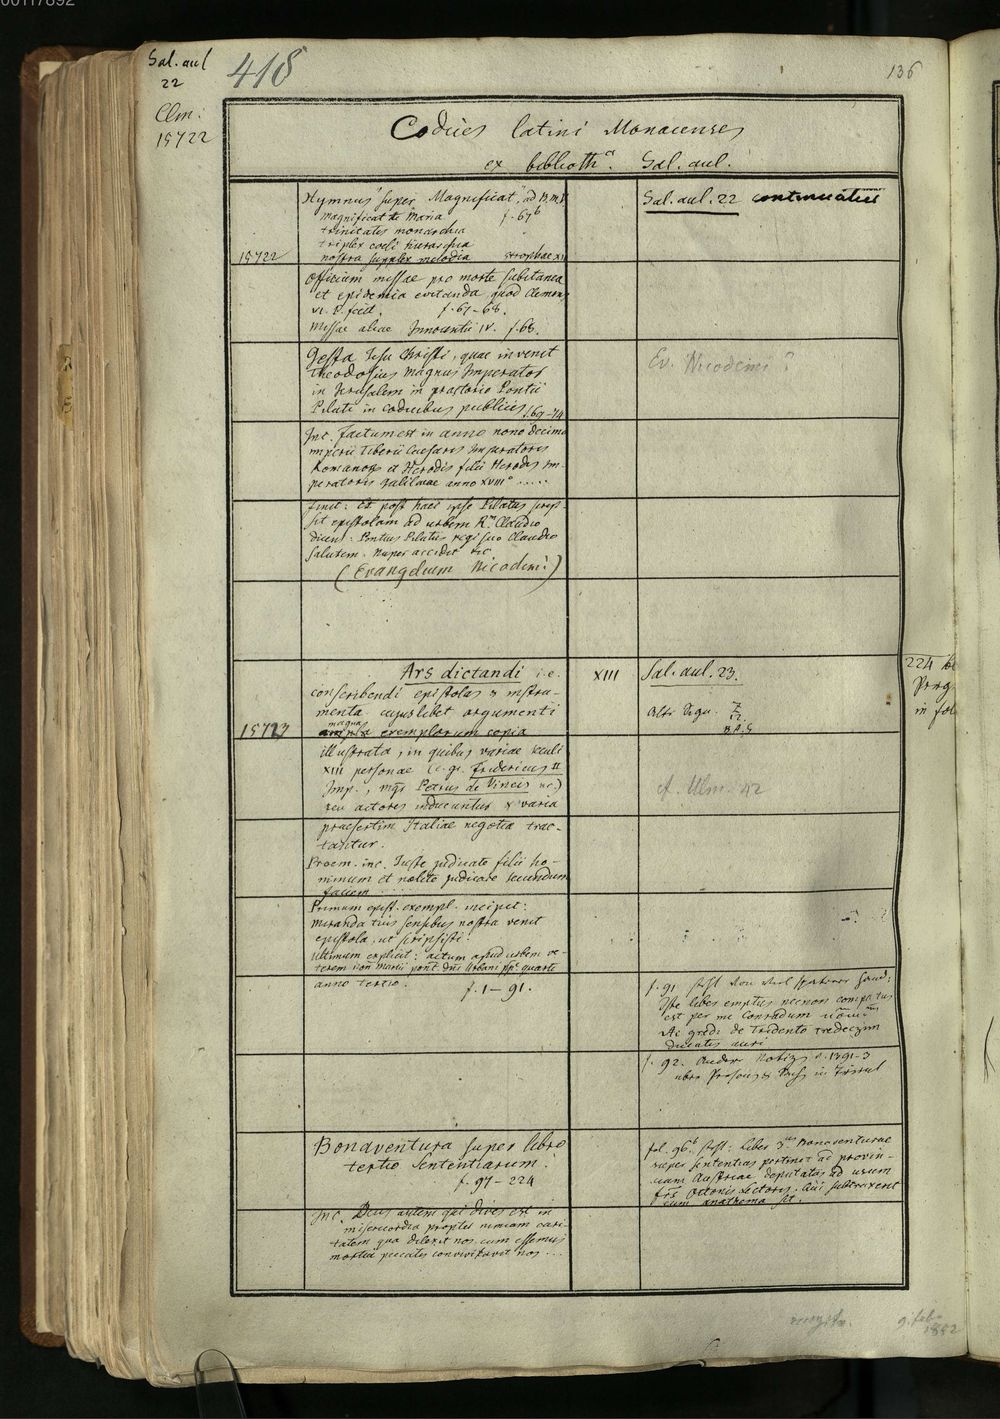 00117892
Sal. aul
22
Clm:
15722
418
136
Codices latini Monacenses
ex biblioth. Sal. aul.
Hymnus super "Magnificat", ad B.M.V.
magnificat te Maria f. 67b
trinitatis monarchia
triplex coeli hierarchia
15722 nostra supplex melodia strophae XI
Sal. aul. 22 continuatus
Officium missae pro morte subitanea
et epidemia evitanda quod Clemens
VI. P. fecit. f. 67-68.
Missae aliae Innocentii IV. f. 68.
Gesta Iesu Christi, quae invenit
Theodosius magnus Imperator
in Jerusalem in praetorio Pontii
Pilati in codicibus publicis f. 69-74
Ev. Nicodemi?
Inc. Factum est in anno nono decimo
imperii Tiberii Caesaris Imperatoris
Romanor. et Herodis filii Herodis im-
peratoris Galilaeae anno XVIII° .....
finit: Et post haec ipse Pilatus scrip-
sit epistolam ad urbem R. Claudio
dicens: Pontius Pilatus regi suo Claudio
salutem. Nuper accidit etc
(Evangelium Nicodemi)
Ars dictandi i. e.
conscribendi epistolas & instru-
menta cujuslibet argumenti
magna
15723 exemplorum copia
illustrata, in quibus variae seculi
XIII personae (e. gr. Fridericus II
Imp., mgr Petrus de Vineis etc.)
seu actores inducuntur & varia
praesertim Italiae negotia trac-
tantur.
Prooem. inc. Juste judicate filii ho-
minum et nolite judicare secundum
faciem
Primum epist. exempl. incipit:
Miranda tuis sensibus nostra venit
epistola, ut scripsisti.
Ultimum explicit: actum apud urbem ve-
terem non. Martii pont. dni Urbani ppe quarti
anno tertio. f. 1-91.
XIII
Sal. aul. 23.
224 bl
Perg
in fol
cf. Ulm. 42
f. 91
Iste liber emptus necnon
est per me Conradum
de Tridento tredecim
ducatis auri
f. 92. Andere Notizen v. 1391-3
in Tirol
Bonaventura super libro
tertio Sententiarum.
f. 97-224
fol. 96b steht: liber 3us Bonaventurae
super sententias pertinet ad provin-
ciam Austriae deputatus ad usum
fris Ottonis Lectoris. Qui subtraxerit
eum anathema sit.
Inc. Deus autem qui dives est in
misericordia propter nimiam cari-
tatem qua dilexit nos cum essemus
mortui peccatis convivificavit nos ...
9. feb.
1852